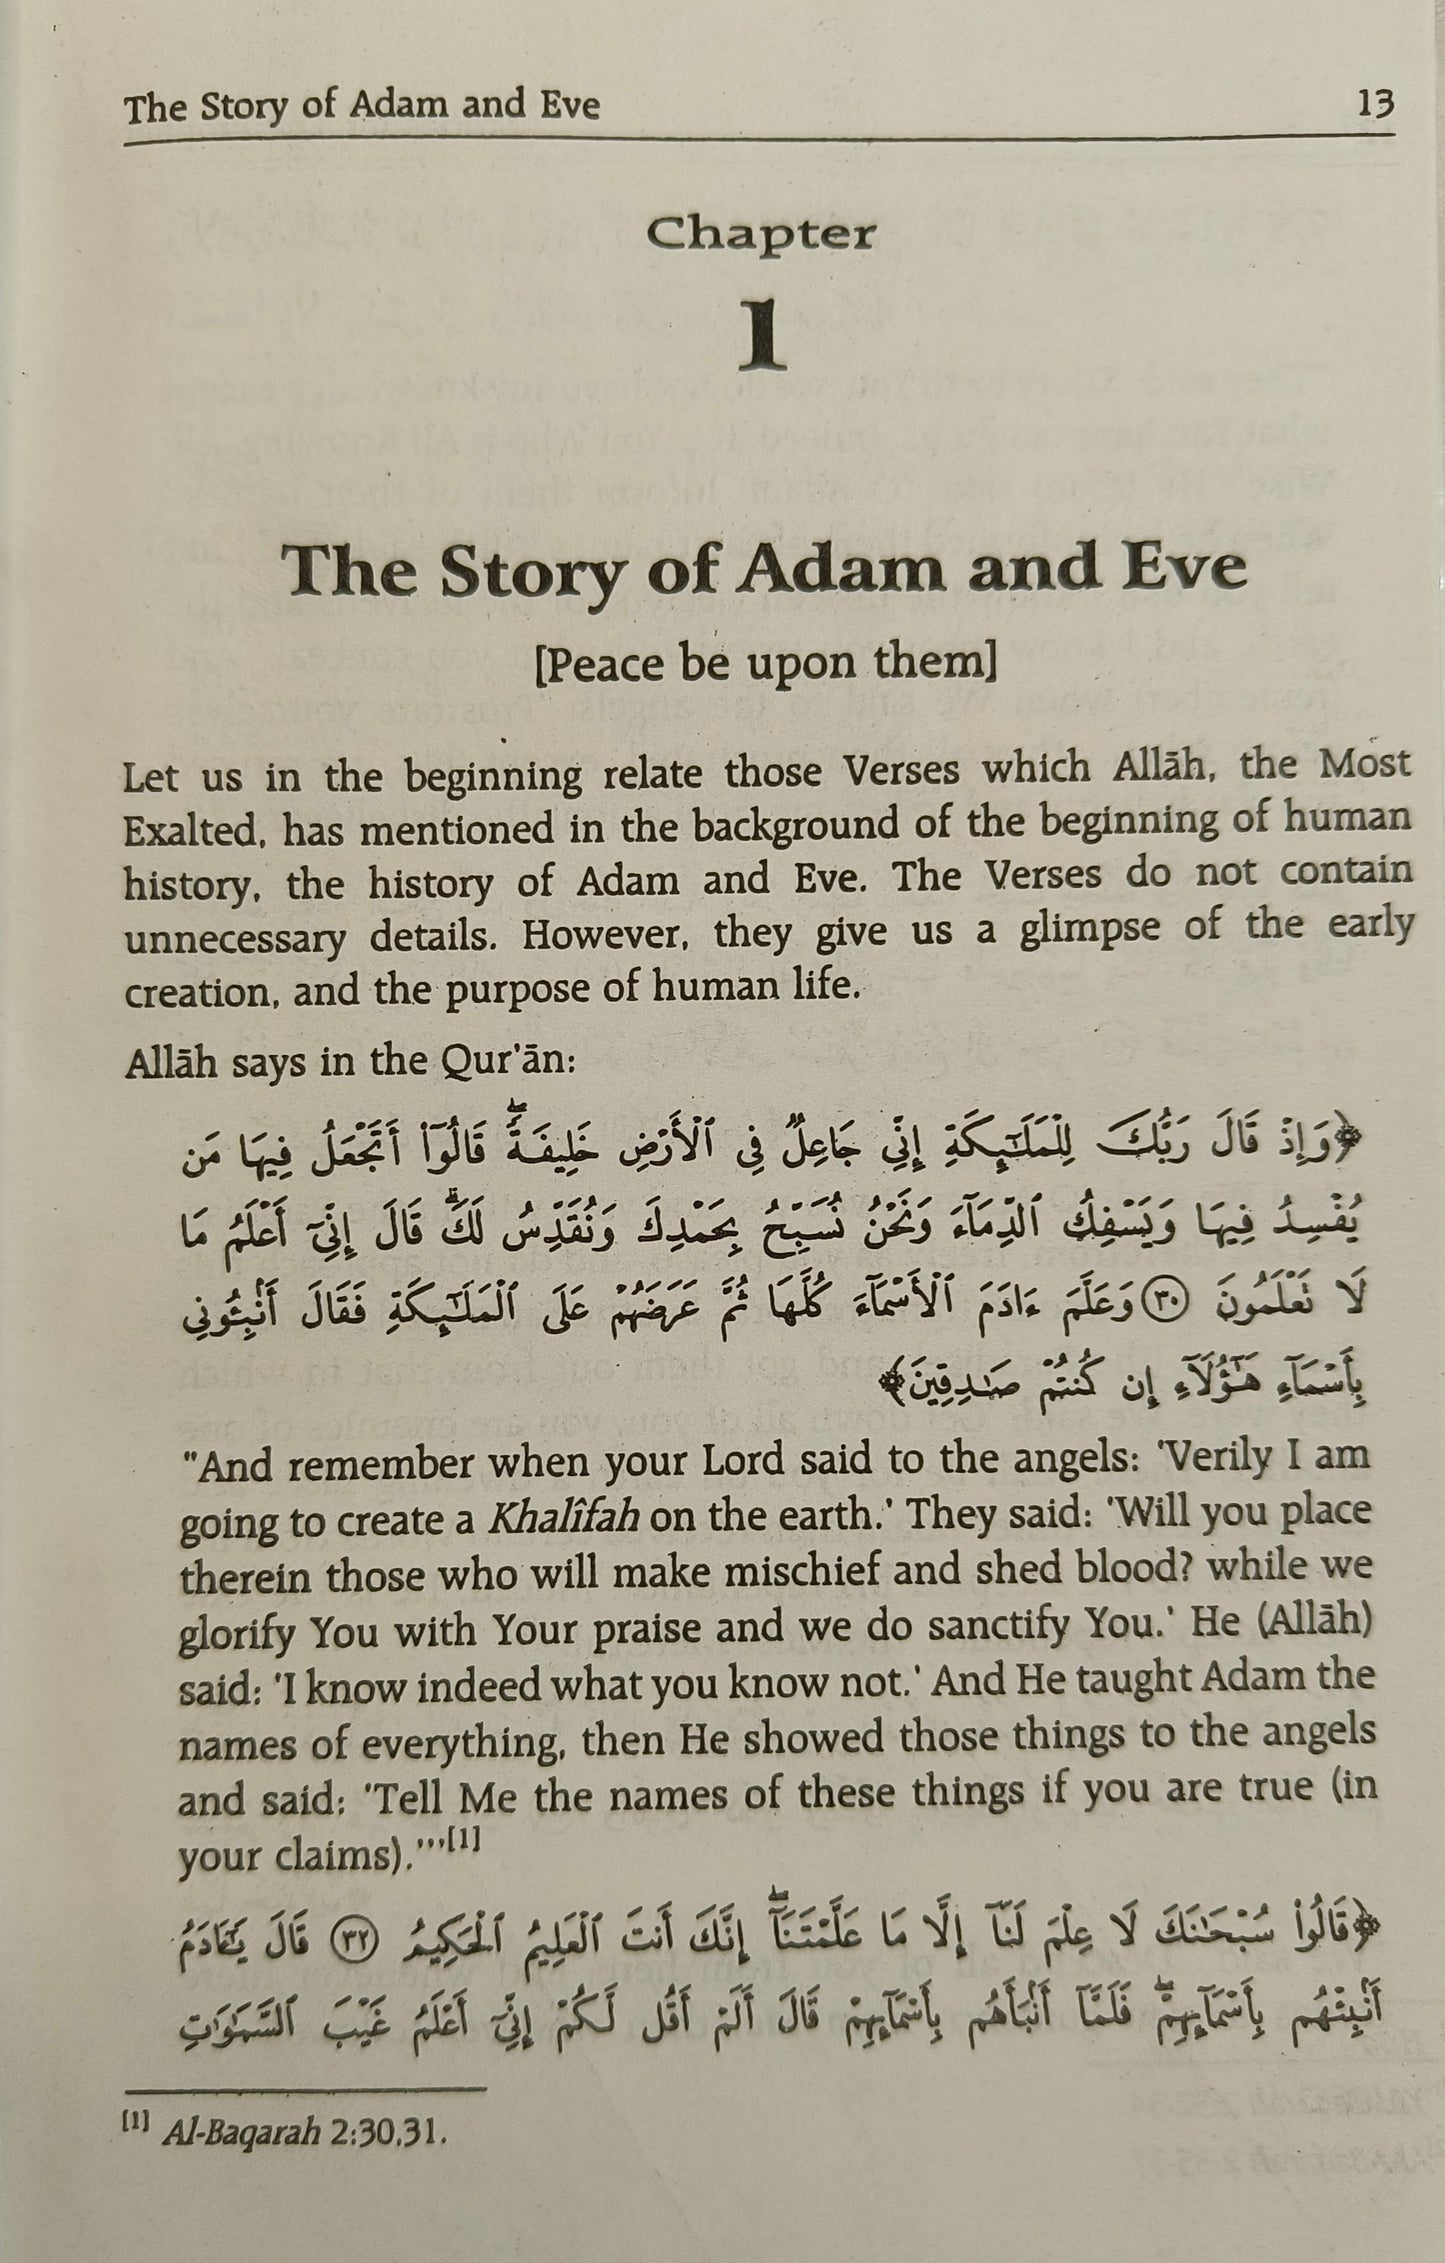 The Story of Adam and Eve 13
Chapter
1
The Story of Adam and Eve
[Peace be upon them]
Let us in the beginning relate those Verses which Allāh, the Most
Exalted, has mentioned in the background of the beginning of human
history, the history of Adam and Eve. The Verses do not contain
unnecessary details. However, they give us a glimpse of the early
creation, and the purpose of human life.
Allāh says in the Qur'ān:
﴿وَإِذْ قَالَ رَبُّكَ لِلْمَلَـٰٓئِكَةِ إِنِّى جَاعِلٌ فِى ٱلْأَرْضِ خَلِيفَةً ۖ قَالُوٓا۟ أَتَجْعَلُ فِيهَا مَن
يُفْسِدُ فِيهَا وَيَسْفِكُ ٱلدِّمَآءَ وَنَحْنُ نُسَبِّحُ بِحَمْدِكَ وَنُقَدِّسُ لَكَ ۖ قَالَ إِنِّىٓ أَعْلَمُ مَا
لَا تَعْلَمُونَ ٣٠ وَعَلَّمَ ءَادَمَ ٱلْأَسْمَآءَ كُلَّهَا ثُمَّ عَرَضَهُمْ عَلَى ٱلْمَلَـٰٓئِكَةِ فَقَالَ أَنۢبِـُٔونِى
بِأَسْمَآءِ هَـٰٓؤُلَآءِ إِن كُنتُمْ صَـٰدِقِينَ﴾
"And remember when your Lord said to the angels: 'Verily I am
going to create a Khalîfah on the earth.' They said: 'Will you place
therein those who will make mischief and shed blood? while we
glorify You with Your praise and we do sanctify You.' He (Allāh)
said: 'I know indeed what you know not.' And He taught Adam the
names of everything, then He showed those things to the angels
and said: 'Tell Me the names of these things if you are true (in
your claims).'"[1]
﴿قَالُوا۟ سُبْحَـٰنَكَ لَا عِلْمَ لَنَآ إِلَّا مَا عَلَّمْتَنَآ ۖ إِنَّكَ أَنتَ ٱلْعَلِيمُ ٱلْحَكِيمُ ٣٢ قَالَ يَـٰٓـَٔادَمُ
أَنۢبِئْهُم بِأَسْمَآئِهِمْ ۖ فَلَمَّآ أَنۢبَأَهُم بِأَسْمَآئِهِمْ قَالَ أَلَمْ أَقُل لَّكُمْ إِنِّىٓ أَعْلَمُ غَيْبَ ٱلسَّمَـٰوَٰتِ
[1] Al-Baqarah 2:30,31.